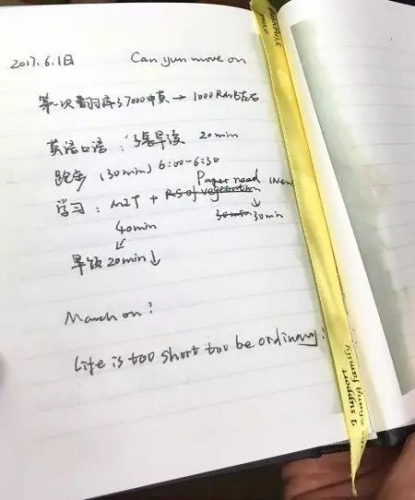 2017.6.1日 Can yun move on
第一次翻译 7000中英 → 1000RMB左右
英语口语: 早读 20min
跑步 (30min) 6:00-6:30
Paper read
学习: MIT + RS of vegetation
40min 30min 30min
早饭 20min ↓
March on!
Life is too short too be ordinary!